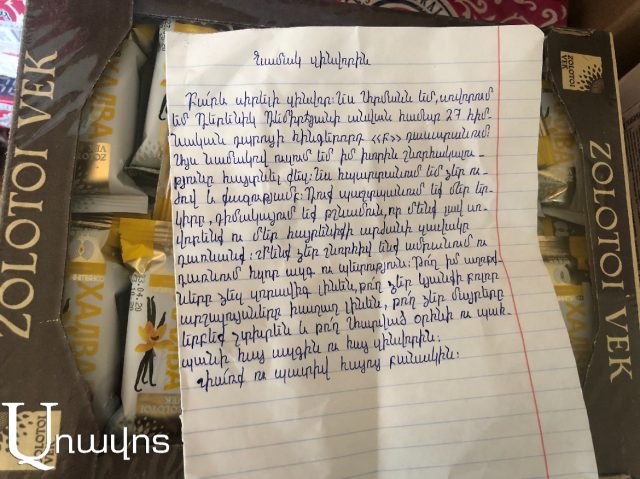 Նամակ զինվորին
Բարև սիրելի զինվոր: Ես Արմանն եմ, սովորում
եմ Դերենիկ Դեմիրճյանի անվան համար 27 հիմ-
նական դպրոցի հինգերորդ «Բ» դասարանում
Այս նամակով ուզում եմ իմ խորին շնորհակալու-
թյունը հայտնել ձեզ: Ես հպարտանում եմ ձեր ու-
ժով և քաջությամբ: Դուք պաշտպանում եք մեր եր-
կիրը, դիմակայում եք թշնամուն, որ մենք լավ սո-
վորենք ու մեր հայրենիքի արժանի զավակը
դառնանք: Մենք ձեր շնորհիվ ենք ամրանում ու
դառնում հզոր ազգ ու պետություն: Թող իմ աղոթք-
ները ձեզ զորավիգ լինեն, թող ձեր կյանքի բոլոր
արշալույսները խաղաղ լինեն, թող ձեր մայրերը
երբեք չտխրեն և թող Աստված օրհնի ու պահ-
պանի հայ ազգին ու հայ զինվորին:
Փառք ու պատիվ հայոց բանակին:
ZOLOTOI VEK
ZOLOTOI VEK
ZOLOTOI
VEK
ХАЛВА
ХАЛВА
Առավոտ